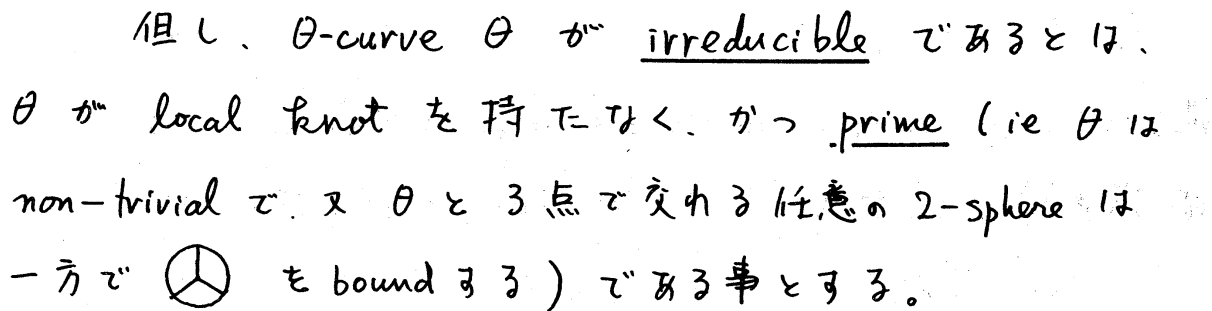 但し、θ-curve θ が irreducible であるとは、
θ が local knot を持たなく、かつ prime (ie θ は
non-trivial で、又 θ と 3 点で交わる任意の 2-sphere は
一方で を bound する) である事とする。